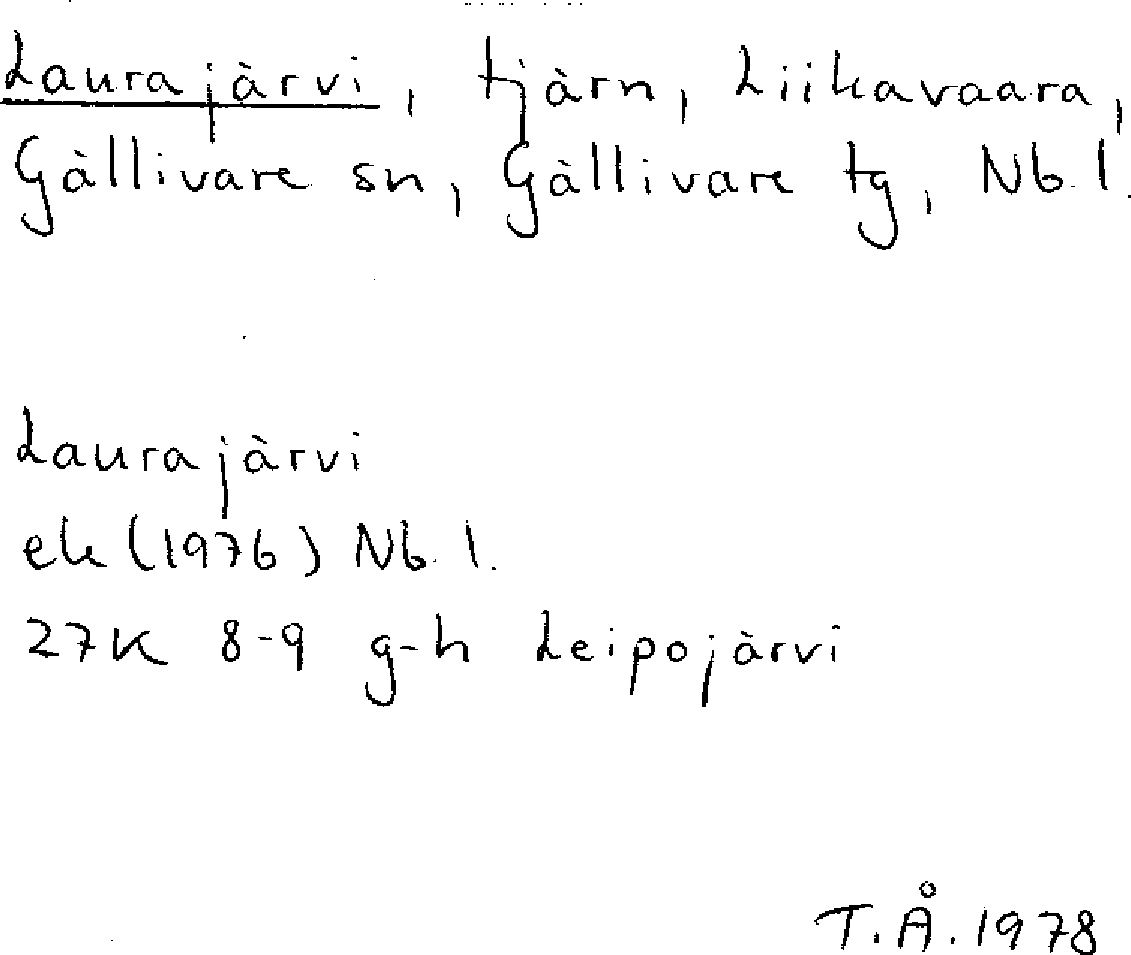 Laurajärvi, tjärn, Liikavaara,
Gällivare sn, Gällivare tg, Nb. l.
Laurajärvi
ek (1976) Nb. l.
27K 8-9 g-h Leipojärvi
T.Å. 1978